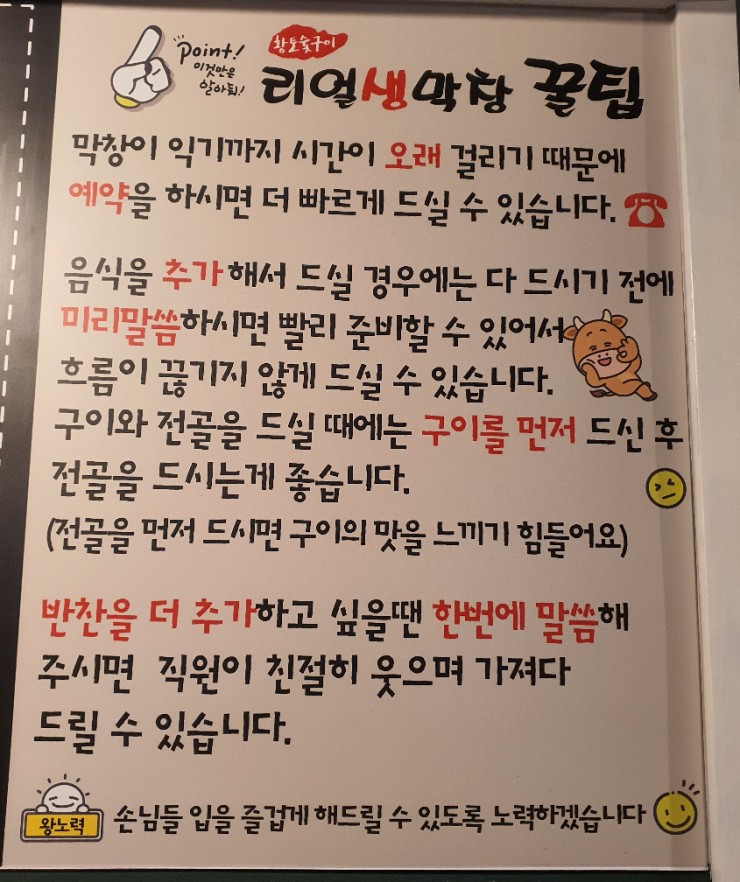 Point!
이것만은
알아둬!
황토숯구이
리얼생막창 꿀팁
막창이 익기까지 시간이 오래 걸리기 때문에
예약을 하시면 더 빠르게 드실 수 있습니다.
음식을 추가해서 드실 경우에는 다 드시기 전에
미리말씀하시면 빨리 준비할 수 있어서
흐름이 끊기지 않게 드실 수 있습니다.
구이와 전골을 드실 때에는 구이를 먼저 드신 후
전골을 드시는게 좋습니다.
(전골을 먼저 드시면 구이의 맛을 느끼기 힘들어요)
반찬을 더 추가하고 싶을땐 한번에 말씀해
주시면 직원이 친절히 웃으며 가져다
드릴 수 있습니다.
왕노력 손님들 입을 즐겁게 해드릴 수 있도록 노력하겠습니다